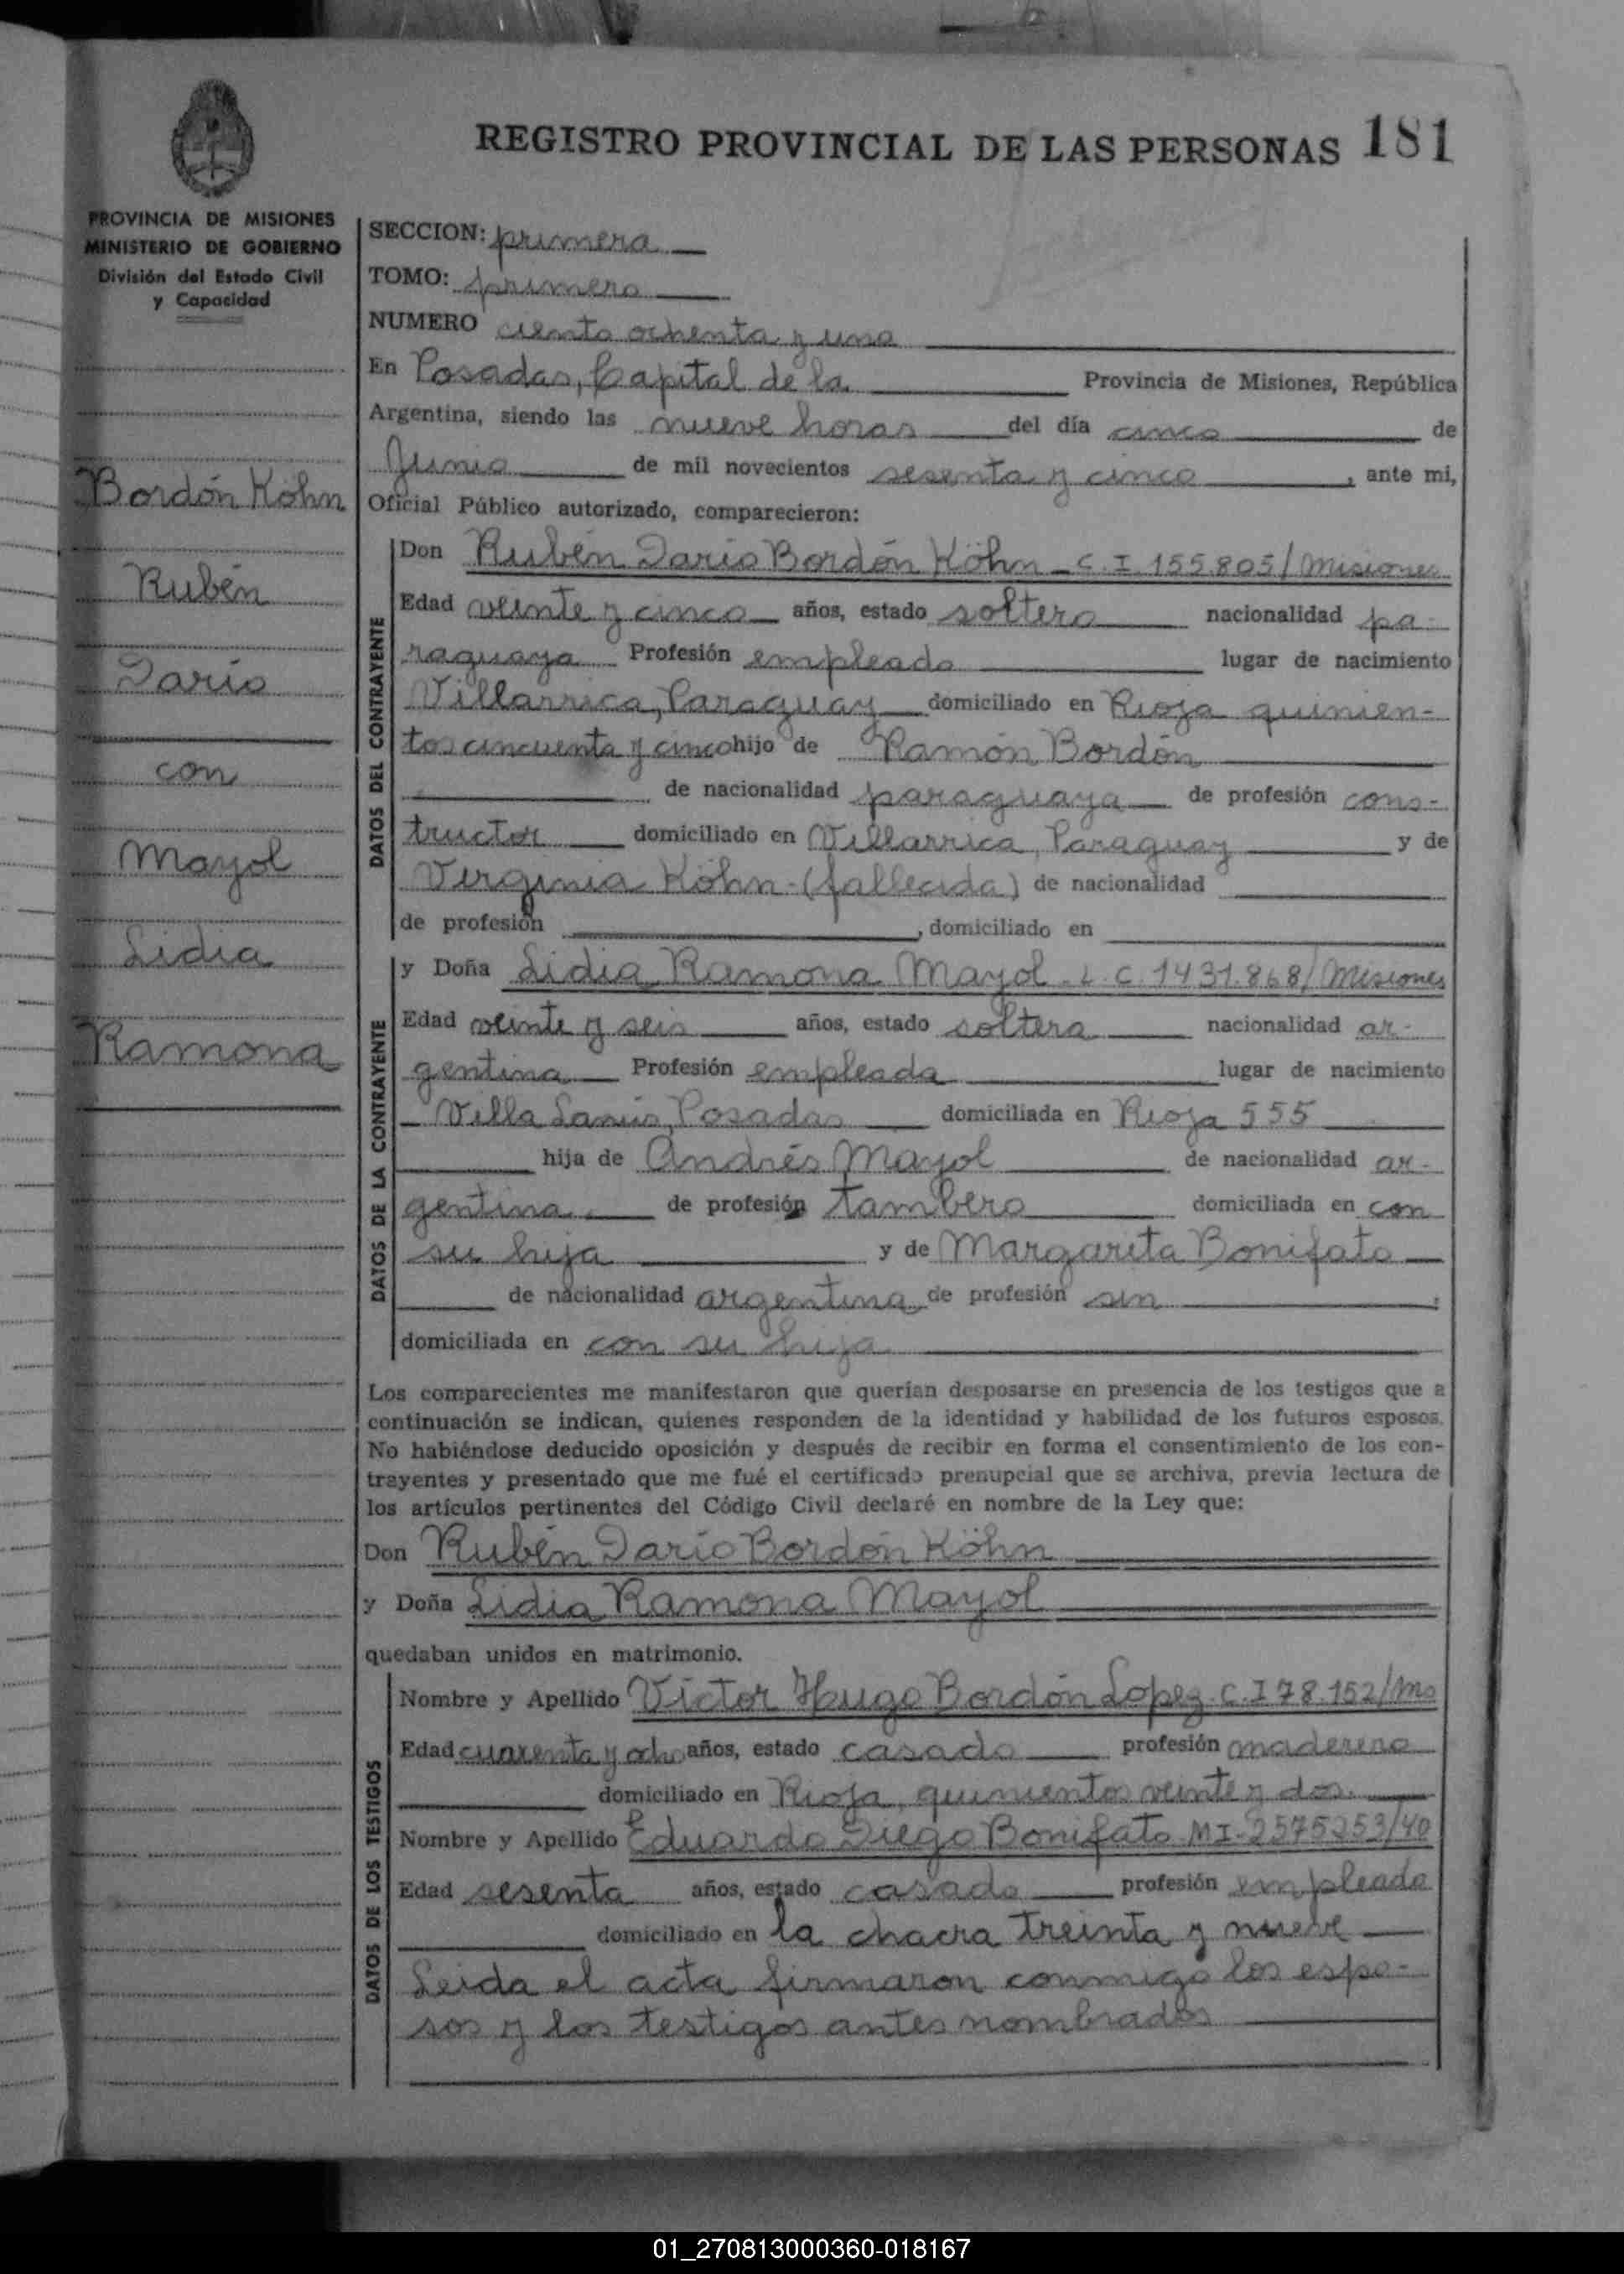 REGISTRO PROVINCIAL DE LAS PERSONAS 181
PROVINCIA DE MISIONES
MINISTERIO DE GOBIERNO
División del Estado Civil
y Capacidad
Bordón Köhn
Rubén
Darío
con
Mayol
Lidia
Ramona
SECCION: primera
TOMO: primero
NUMERO ciento ochenta y uno
En Posadas, Capital de la Provincia de Misiones, República
Argentina, siendo las nueve horas del día cinco de
Junio de mil novecientos sesenta y cinco, ante mi,
Oficial Público autorizado, comparecieron:
DATOS DEL CONTRAYENTE
Don Rubén Darío Bordón Köhn - C. I 155.805/Misiones
Edad veinte y cinco años, estado soltero nacionalidad pa-
raguaya Profesión empleado lugar de nacimiento
Villarrica, Paraguay domiciliado en Rioja quinien-
tos cincuenta y cinco hijo de Ramón Bordón
de nacionalidad paraguaya de profesión cons-
tructor domiciliado en Villarrica, Paraguay y de
Virginia Köhn - (fallecida) de nacionalidad
de profesión , domiciliado en
DATOS DE LA CONTRAYENTE
y Doña Lidia Ramona Mayol - L. C. 1431.868/Misiones
Edad veinte y seis años, estado soltera nacionalidad ar-
gentina Profesión empleada lugar de nacimiento
Villa Lanús, Posadas domiciliada en Rioja 555
hija de Andrés Mayol de nacionalidad ar-
gentina de profesión tambero domiciliada en con
su hija y de Margarita Bonifato
de nacionalidad argentina de profesión sin,
domiciliada en con su hija
Los comparecientes me manifestaron que querían desposarse en presencia de los testigos que a
continuación se indican, quienes responden de la identidad y habilidad de los futuros esposos.
No habiéndose deducido oposición y después de recibir en forma el consentimiento de los con-
trayentes y presentado que me fué el certificado prenupcial que se archiva, previa lectura de
los artículos pertinentes del Código Civil declaré en nombre de la Ley que:
Don Rubén Darío Bordón Köhn
y Doña Lidia Ramona Mayol
quedaban unidos en matrimonio.
DATOS DE LOS TESTIGOS
Nombre y Apellido Víctor Hugo Bordón Lopez - C. I 78.152/Ms
Edad cuarenta y ocho años, estado casado profesión maderero
domiciliado en Rioja, quinientos veinte y dos.
Nombre y Apellido Eduardo Diego Bonifato MI-2575253/40
Edad sesenta años, estado casado profesión empleado
domiciliado en la chacra treinta y nueve
Leida el acta firmaron conmigo los espo-
sos y los testigos antes nombrados
01_270813000360-018167